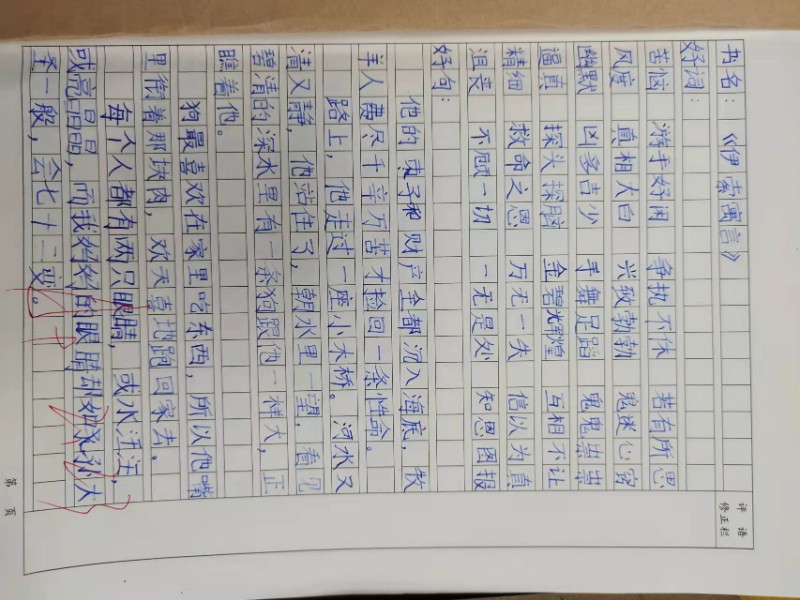 书名：《伊索寓言》
好词：
苦恼 游手好闲 争执不休 若有所思
风度 真相大白 兴致勃勃 鬼迷心窍
幽默 凶多吉少 手舞足蹈 鬼鬼祟祟
逼真 探头探脑 金碧辉煌 互相不让
精细 救命之恩 万无一失 信以为真
沮丧 不顾一切 一无是处 知恩图报
好句：
他的妻子和财产全都沉入海底，牧
羊人费尽千辛万苦才捡回一条性命。
路上，他走过一座小木桥。河水又
清又静，他站住了，朝水里一望，看见
碧清的深水里有一条狗跟他一样大，正
瞧着他。
狗最喜欢在家里吃东西，所以他嘴
里衔着那块肉，欢天喜地跑回家去。
每个人都有两只眼睛，或水汪汪，
或亮晶晶，而我妈妈的眼睛却如孙大
圣一般，会七十二变。
评语
修正栏
第 页